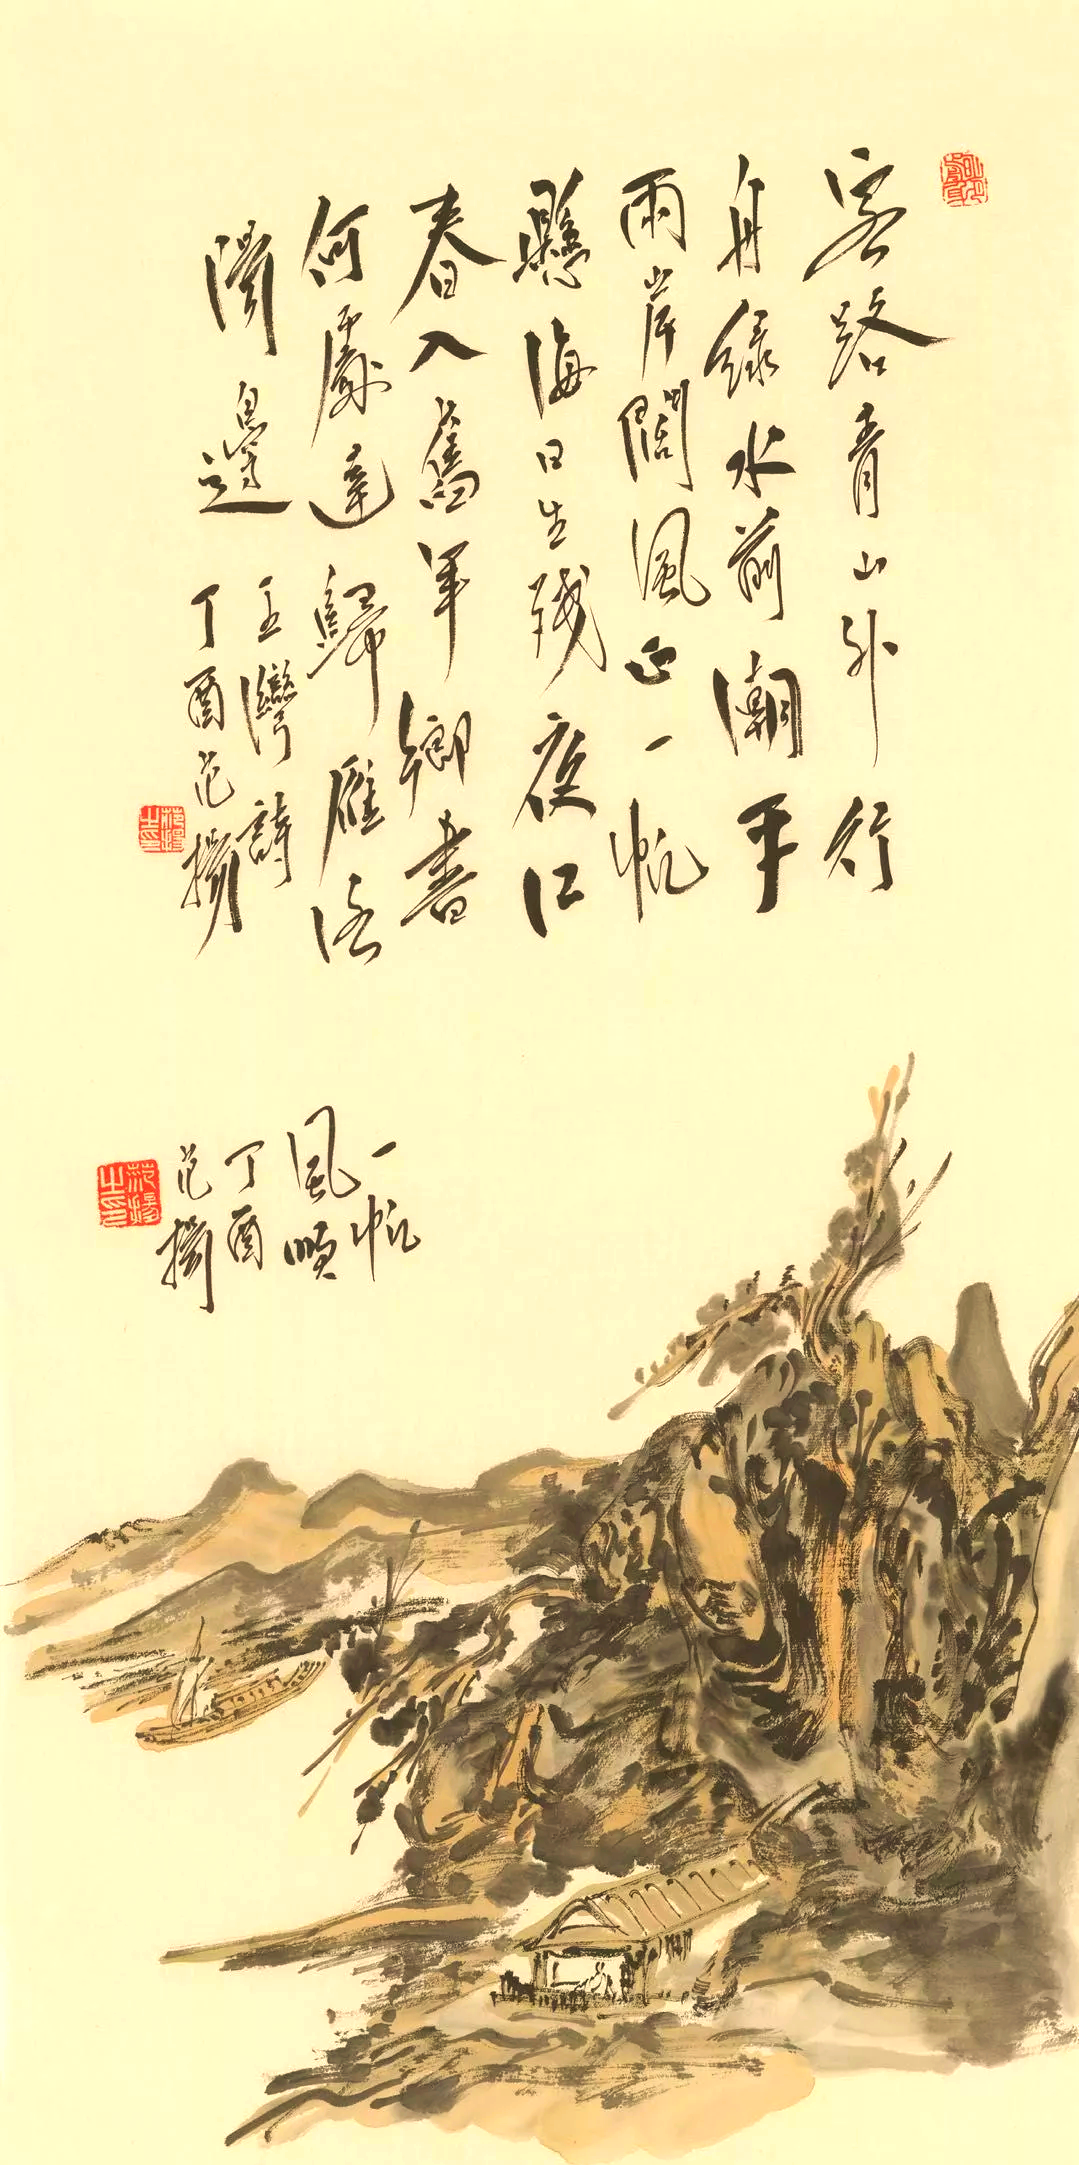 客路青山外行
舟綠水前潮平
兩岸闊風正一帆
懸海日生殘夜江
春入舊年鄉書
何處達歸雁洛
陽邊
王灣詩
丁酉范揚
范揚之印
一帆
風順
丁酉
范揚
范揚之印